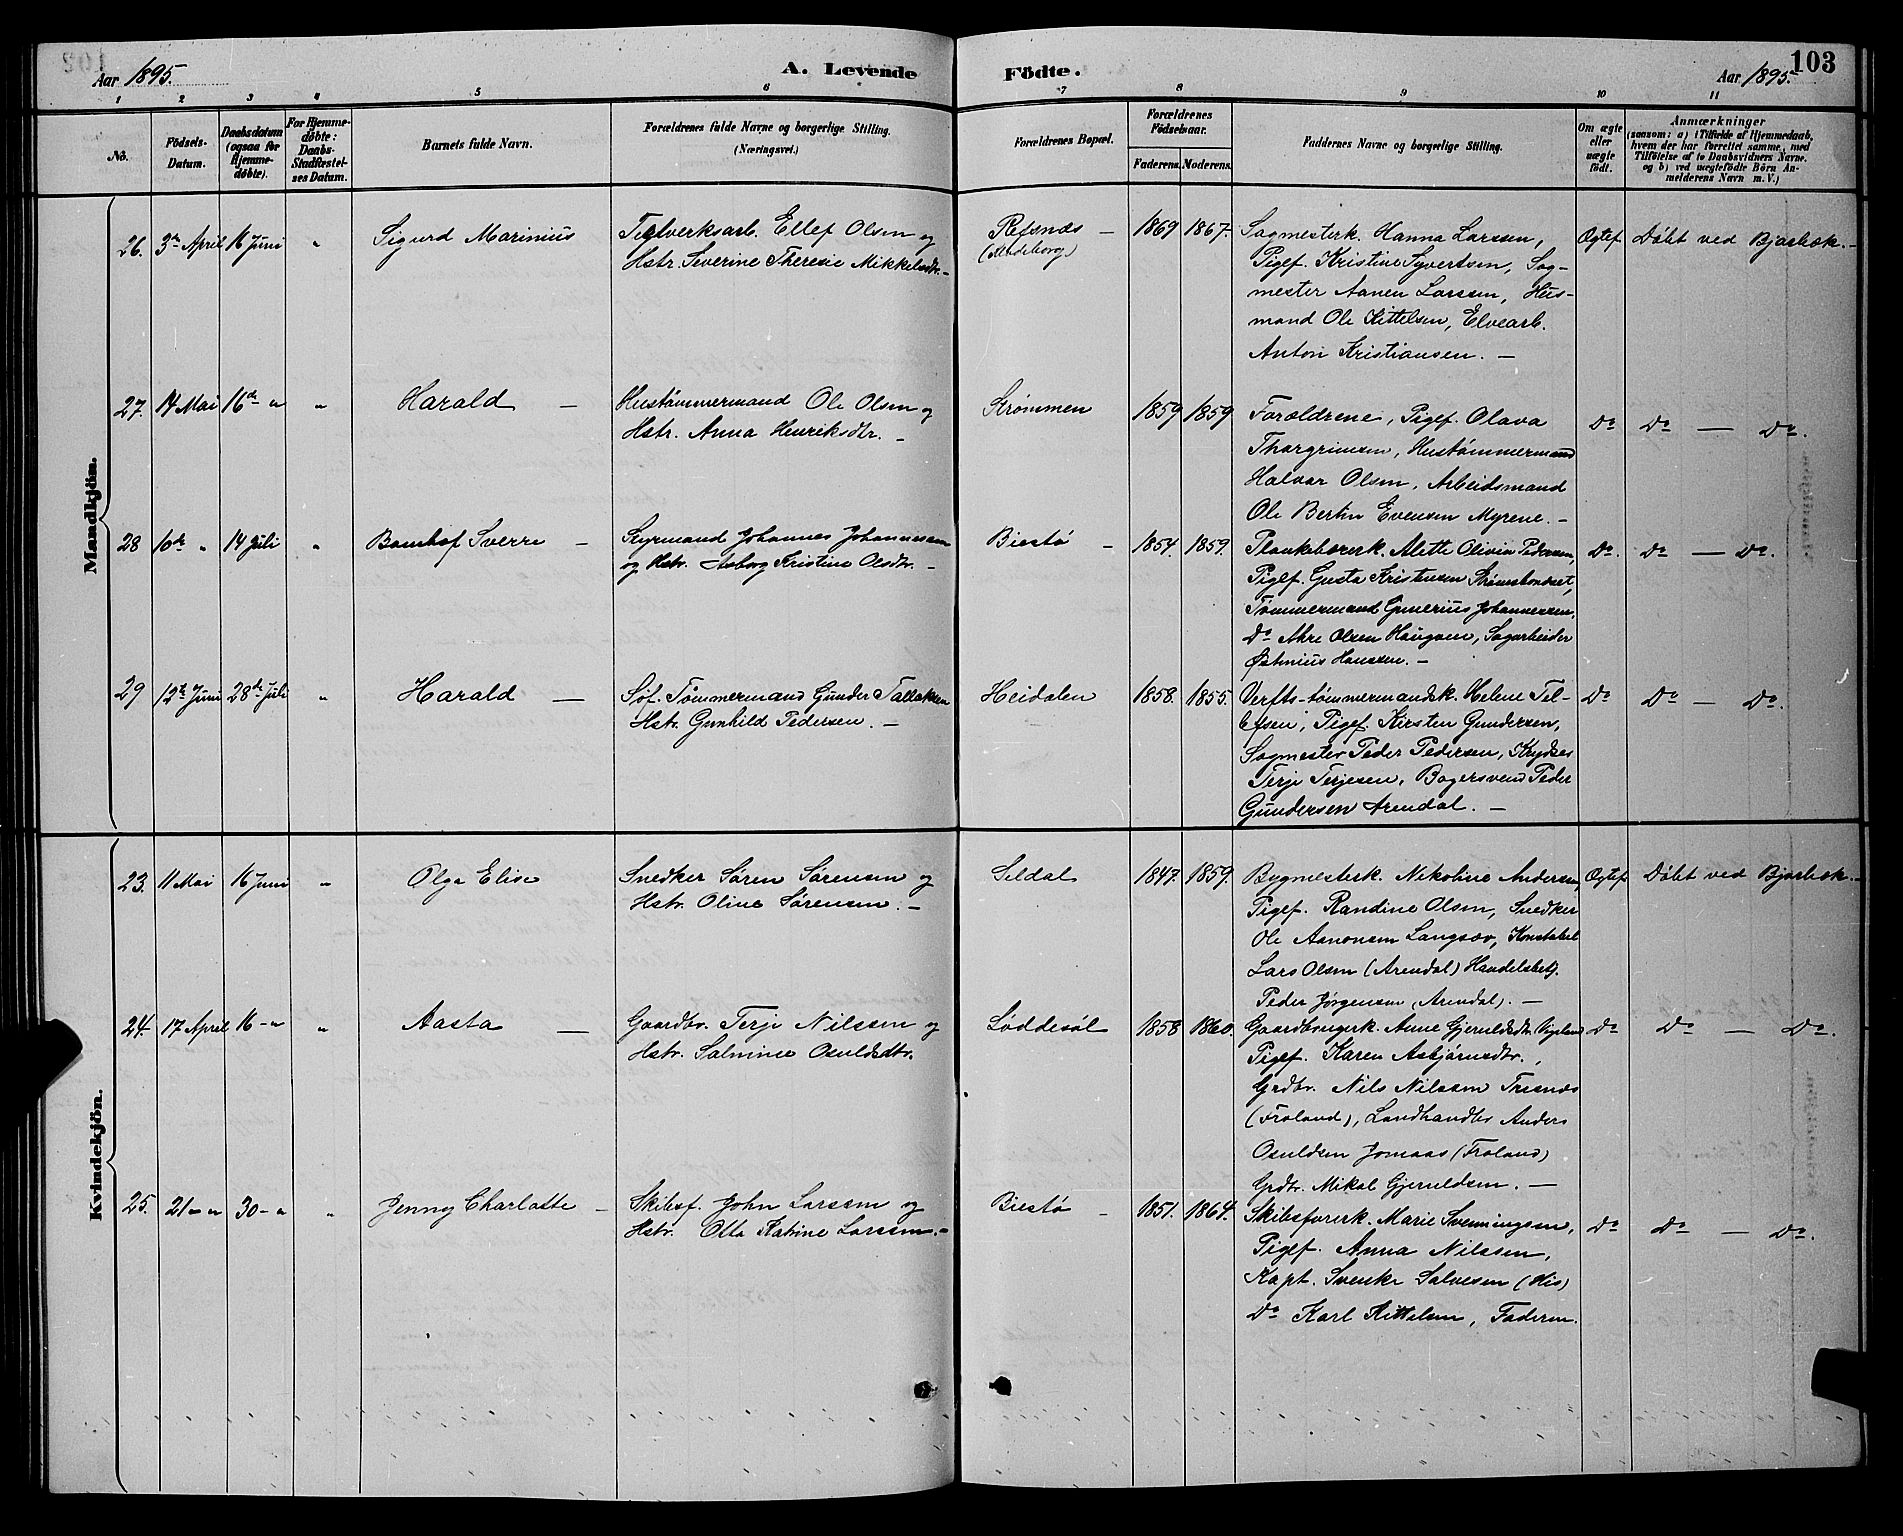 Aar 1895. A. Levende Födte. Aar 1895. 103
1 2 3 4 5 6 7 8 9 10 11
No. Födsels-Datum. Daabsdatum (ogsaa for Hjemmedøbte). For Hjemmedøbte: Daabs-Stadfæstelses Datum. Barnets fulde Navn. Forældrenes fulde Navne og borgerlige Stilling. (Næringsvei.) Forældrenes Bopæl. Forældrenes Födselsaar. Faderens. Moderens. Faddernes Navne og borgerlige Stilling. Om ægte eller uægte födt. Anmærkninger (saasom: a) i Tilfælde af Hjemmedaab, hvem der har forrettet samme, med Tilföielse af to Daabsvidners Navne. og b) ved uægtefödte Börn Anmelderens Navn m. V.)
Mandkjön.
26. 3die April 16 Juni " Sigurd Marinius
Ellef Olsen og
Hstr. Severine Theresie Mikkelsdtr. -
Refsnæs -
1869 1867.
Sagmesterk. Hanna Larssen,
Pigef. Kristine Syvertsen, Sag-
mester Aanen Larssen, Hus-
mand Ole Kittelsen, Elvearb.
Anton Kristiansen. -
Ægtef. Döbt ved Bjorbæk. -
27. 14 Mai 16de " " Harald -
Hustömmermand Ole Olsen og
Hstr. Anna Henriksdtr. -
Strömmen
1859 1859
Forældrene, Pigef. Olava
Thorgrimsen, Hustömmermand
Halvor Olsen, Arbeidsmand
Ole Bertin Evensen Myrene. -
Do Do - Do.
28 10de " 14 Juli " Sverre -
Styrmand Johannes Johannessen
og Hstr. Kristine Olsdtr. -
Biestö -
1854. 1859.
Plankebærerk. Alette Olivia Pedersen,
Pigef. Gusta Kristensen
Tömmermand Gunerius Johannessen,
Do Olsen Haugaen, Sagarbeider
Hanssen. -
Do. Do - Do.
29 12te Juni 28de Juli " Harald -
Söf. Tömmermand Gunder Tallaksen
Hstr. Gunhild Pedersen. -
Heidalen
1858. 1855.
Verfts-tömmermandsk. Helene Tel-
lefsen, Pigef. Kirsten Gundersen,
Sagmester Peder Pedersen,
Terje Terjesen, Bagersvend Peder
Gundersen Arendal. -
Do Do - Do.
Kvindekjön.
23. 11 Mai 16 Juni " Olga Elise
Snedker Sören Sörensen og
Hstr. Oline Sörensen. -
Seldal
1847. 1859.
Bygmesterk. Nikoline Andersen,
Pigef. Randine Olsen, Snedker
Ole Aanonsen Langsæv, Konstabel
Lars Olsen (Arendal) Handelsbetj.
Peder Jørgensen (Arendal). -
Ægtef. Döbt ved Bjorbæk. -
24. 17 April 16 - " " Aasta -
Gaardbr. Terje Nilssen og
Hstr. Salmine Osuldsdtr.
Löddesöl
1858 1860.
Gaardbrugerk. Anne Gjeruldsdtr.
Pigef. Karen Asbjörnsdtr.,
Grdbr. Nils Nilssen Tresnæs
(Froland), Landhandler Anders
Osuldsen Jomaas (Froland)
Grdbr. Mikal Gjeruldsen. -
Do Do - Do.
25. 21 - " 30 - " " Jenny Charlotte -
Skibsf. John Larssen og
Hstr. Otta Katrine Larssen. -
Biestö -
1851. 1864.
Skibsförerk. Marie Svenningsen,
Pigef. Anna Nilssen,
Kapt. Svenke Salvesen (His)
Do Karl Kittelsen, Faderen.
Do Do - Do.